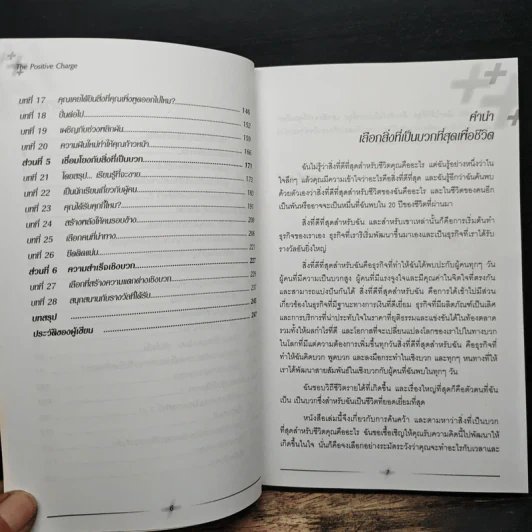 The Positive Charge
บทที่ 17 คุณเคยได้ยินสิ่งที่คุณเพิ่งพูดออกไปไหม? 146
บทที่ 18 ปั่นต่อไป 152
บทที่ 19 เผชิญกับช่วงพลิกผัน
บทที่ 20 ความฝันใหม่ทำให้คุณก้าวหน้า
ส่วนที่ 5 เชื่อมโยงกับสิ่งที่เป็นบวก 171
บทที่ 21 โดยสรุป... เรียนรู้ที่จะขาย 173
บทที่ 22 เป็นนักเรียนเกี่ยวกับผู้คน
บทที่ 23 คุณได้รับคุกกี้ไหม?
บทที่ 24 สร้างคลังให้คนรอบข้าง
บทที่ 25 เลือกคนที่นำทาง
บทที่ 26 ยึดติดแน่น
ส่วนที่ 6 ความสำเร็จเชิงบวก 227
บทที่ 27 เลือกที่สร้างความแตกต่างเชิงบวก
บทที่ 28 สนุกสนานกับรางวัลที่ได้รับ
บทสรุป
ประวัติของผู้เขียน 247
คำนำ
เลือกสิ่งที่เป็นบวกที่สุดเพื่อชีวิต
ฉันไม่รู้ว่าสิ่งที่ดีที่สุดสำหรับชีวิตคุณคืออะไร แต่ฉันรู้อย่างหนึ่งว่าใน
ใจลึกๆ แล้วคุณมีความเข้าใจว่าอะไรคือสิ่งที่ดีที่สุด และฉันรู้อีกว่าฉันค้นพบ
ด้วยตัวเองว่าสิ่งที่ดีที่สุดสำหรับชีวิตของฉันคืออะไร และในชีวิตของคนอีก
เป็นพันหรืออาจจะเป็นหมื่นที่ฉันพบใน 30 ปีของชีวิตที่ผ่านมา
สิ่งที่ดีที่สุดสำหรับฉัน และสำหรับเขาเหล่านั้นก็คือการเริ่มต้นทำ
ธุรกิจของเราเอง ธุรกิจที่เราริเริ่มพัฒนาขึ้นมาเองและเป็นธุรกิจที่เราได้รับ
รางวัลอันยิ่งใหญ่
สิ่งที่ดีที่สุดสำหรับฉันคือธุรกิจที่ทำให้ฉันได้พบปะกับผู้คนทุกๆ วัน
ผู้คนที่มีความเป็นบวกสูง ผู้คนที่มีแรงจูงใจและมีคุณค่าในจิตใจที่ตรงกัน
และสามารถแบ่งปันกันได้ สิ่งที่ดีที่สุดสำหรับฉัน คือการได้เข้าไปมีส่วน
เกี่ยวข้องในธุรกิจที่มีฐานะทางการเงินที่ดีเยี่ยม ธุรกิจที่มีผลิตภัณฑ์เป็นเลิศ
และการบริการที่น่าประทับใจในราคาที่ยุติธรรมและแข่งขันได้ในท้องตลาด
รวมทั้งให้ผลกำไรที่ดี และโอกาสที่จะเปลี่ยนแปลงโลกของเราไปในทางบวก
ในโลกที่มีแต่ความต้องการเพิ่มขึ้นทุกวันสิ่งที่ดีที่สุดสำหรับฉัน คือธุรกิจที่
ทำให้ฉันคิดบวก พูดบวก และลงมือกระทำในเชิงบวก และทุกๆ หนทางที่ให้
เราได้พัฒนาสายสัมพันธ์ในเชิงบวกกับผู้คนที่ฉันพบในทุกๆ วัน
ฉันชอบวิถีชีวิตรายได้ที่เกิดขึ้น และเรื่องใหญ่ที่สุดก็คือตัวตนที่ฉัน
เป็น เป็นบวกซึ่งสำหรับฉันเป็นชีวิตที่ยอดเยี่ยมที่สุด
หนังสือเล่มนี้จึงเกี่ยวกับการค้นคว้า และตามหาว่าสิ่งที่เป็นบวก
ที่สุดสำหรับชีวิตคุณคืออะไร ฉันขอเชื้อเชิญให้คุณรับความคิดนี้ไปพัฒนาให้
เกิดขึ้นในใจ นั่นก็คือจงเลือกอย่างระมัดระวังว่าคุณจะทำอะไรกับเวลาและ